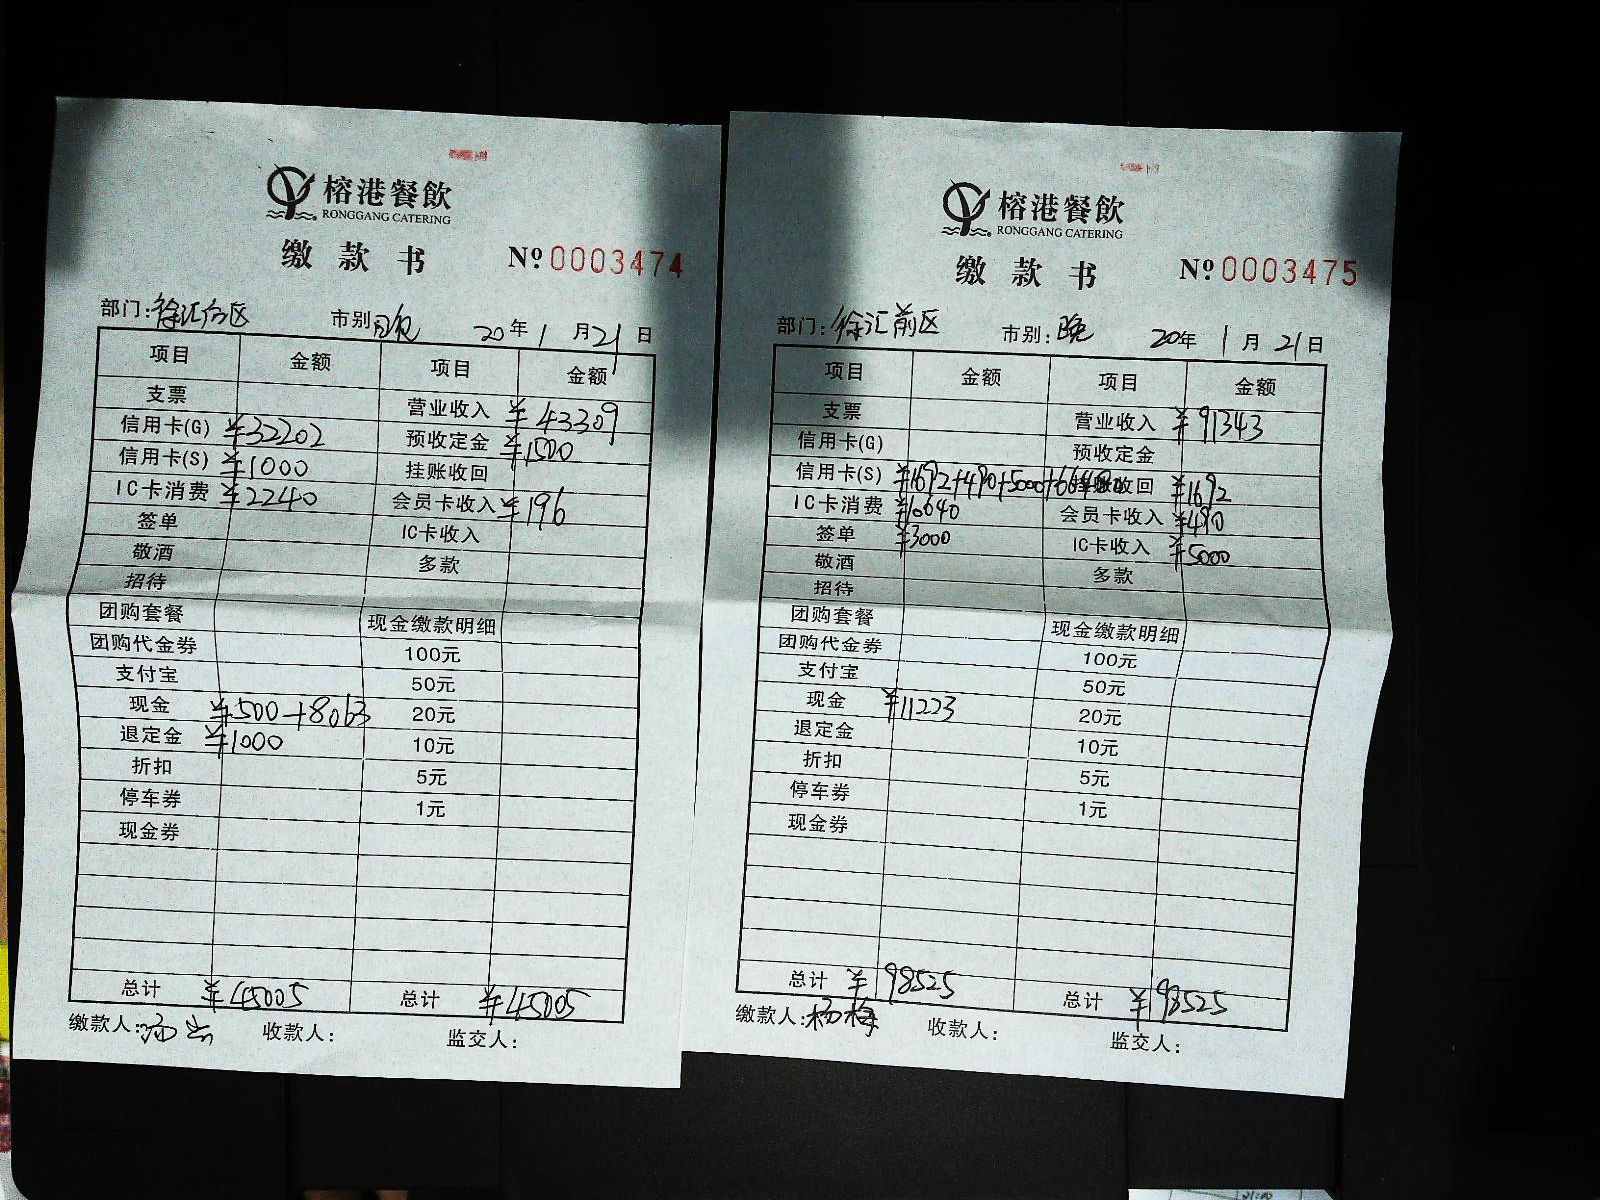 榕港餐飲
RONGGANG CATERING
缴款书 Nº 0003474
部门:徐汇台区 市别:晚 20年1月21日
项目 金额 项目 金额
支票 营业收入 ¥43309
信用卡(G) ¥32202 预收定金 ¥1500
信用卡(S) ¥1000 挂账收回
IC卡消费 ¥2240 会员卡收入 ¥196
签单 IC卡收入
敬酒 多款
招待
团购套餐 现金缴款明细
团购代金券 100元
支付宝 50元
现金 ¥500+8063 20元
退定金 ¥1000 10元
折扣 5元
停车券 1元
现金券
总计 ¥45005 总计 ¥45005
缴款人: 收款人: 监交人:
榕港餐飲
RONGGANG CATERING
缴款书 Nº 0003475
部门:徐汇前区 市别:晚 20年1月21日
项目 金额 项目 金额
支票 营业收入 ¥91343
信用卡(G) 预收定金
信用卡(S) ¥1692+490+5000+66480 挂账收回 ¥1692
IC卡消费 ¥10640 会员卡收入 ¥490
签单 ¥3000 IC卡收入 ¥5000
敬酒 多款
招待
团购套餐 现金缴款明细
团购代金券 100元
支付宝 50元
现金 ¥11223 20元
退定金 10元
折扣 5元
停车券 1元
现金券
总计 ¥98525 总计 ¥98525
缴款人:杨梅 收款人: 监交人: